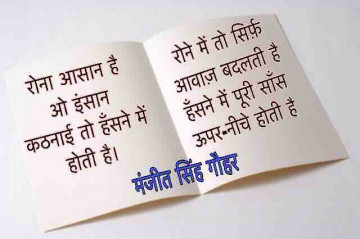 रोना आसान है
ओ इंसान
कठनाई तो हँसने में
होती है।
रोने में तो सिर्फ़
आवाज़ बदलती है
हँसने में पूरी साँस
ऊपर-नीचे होती है
मंजीत सिंह गौहर